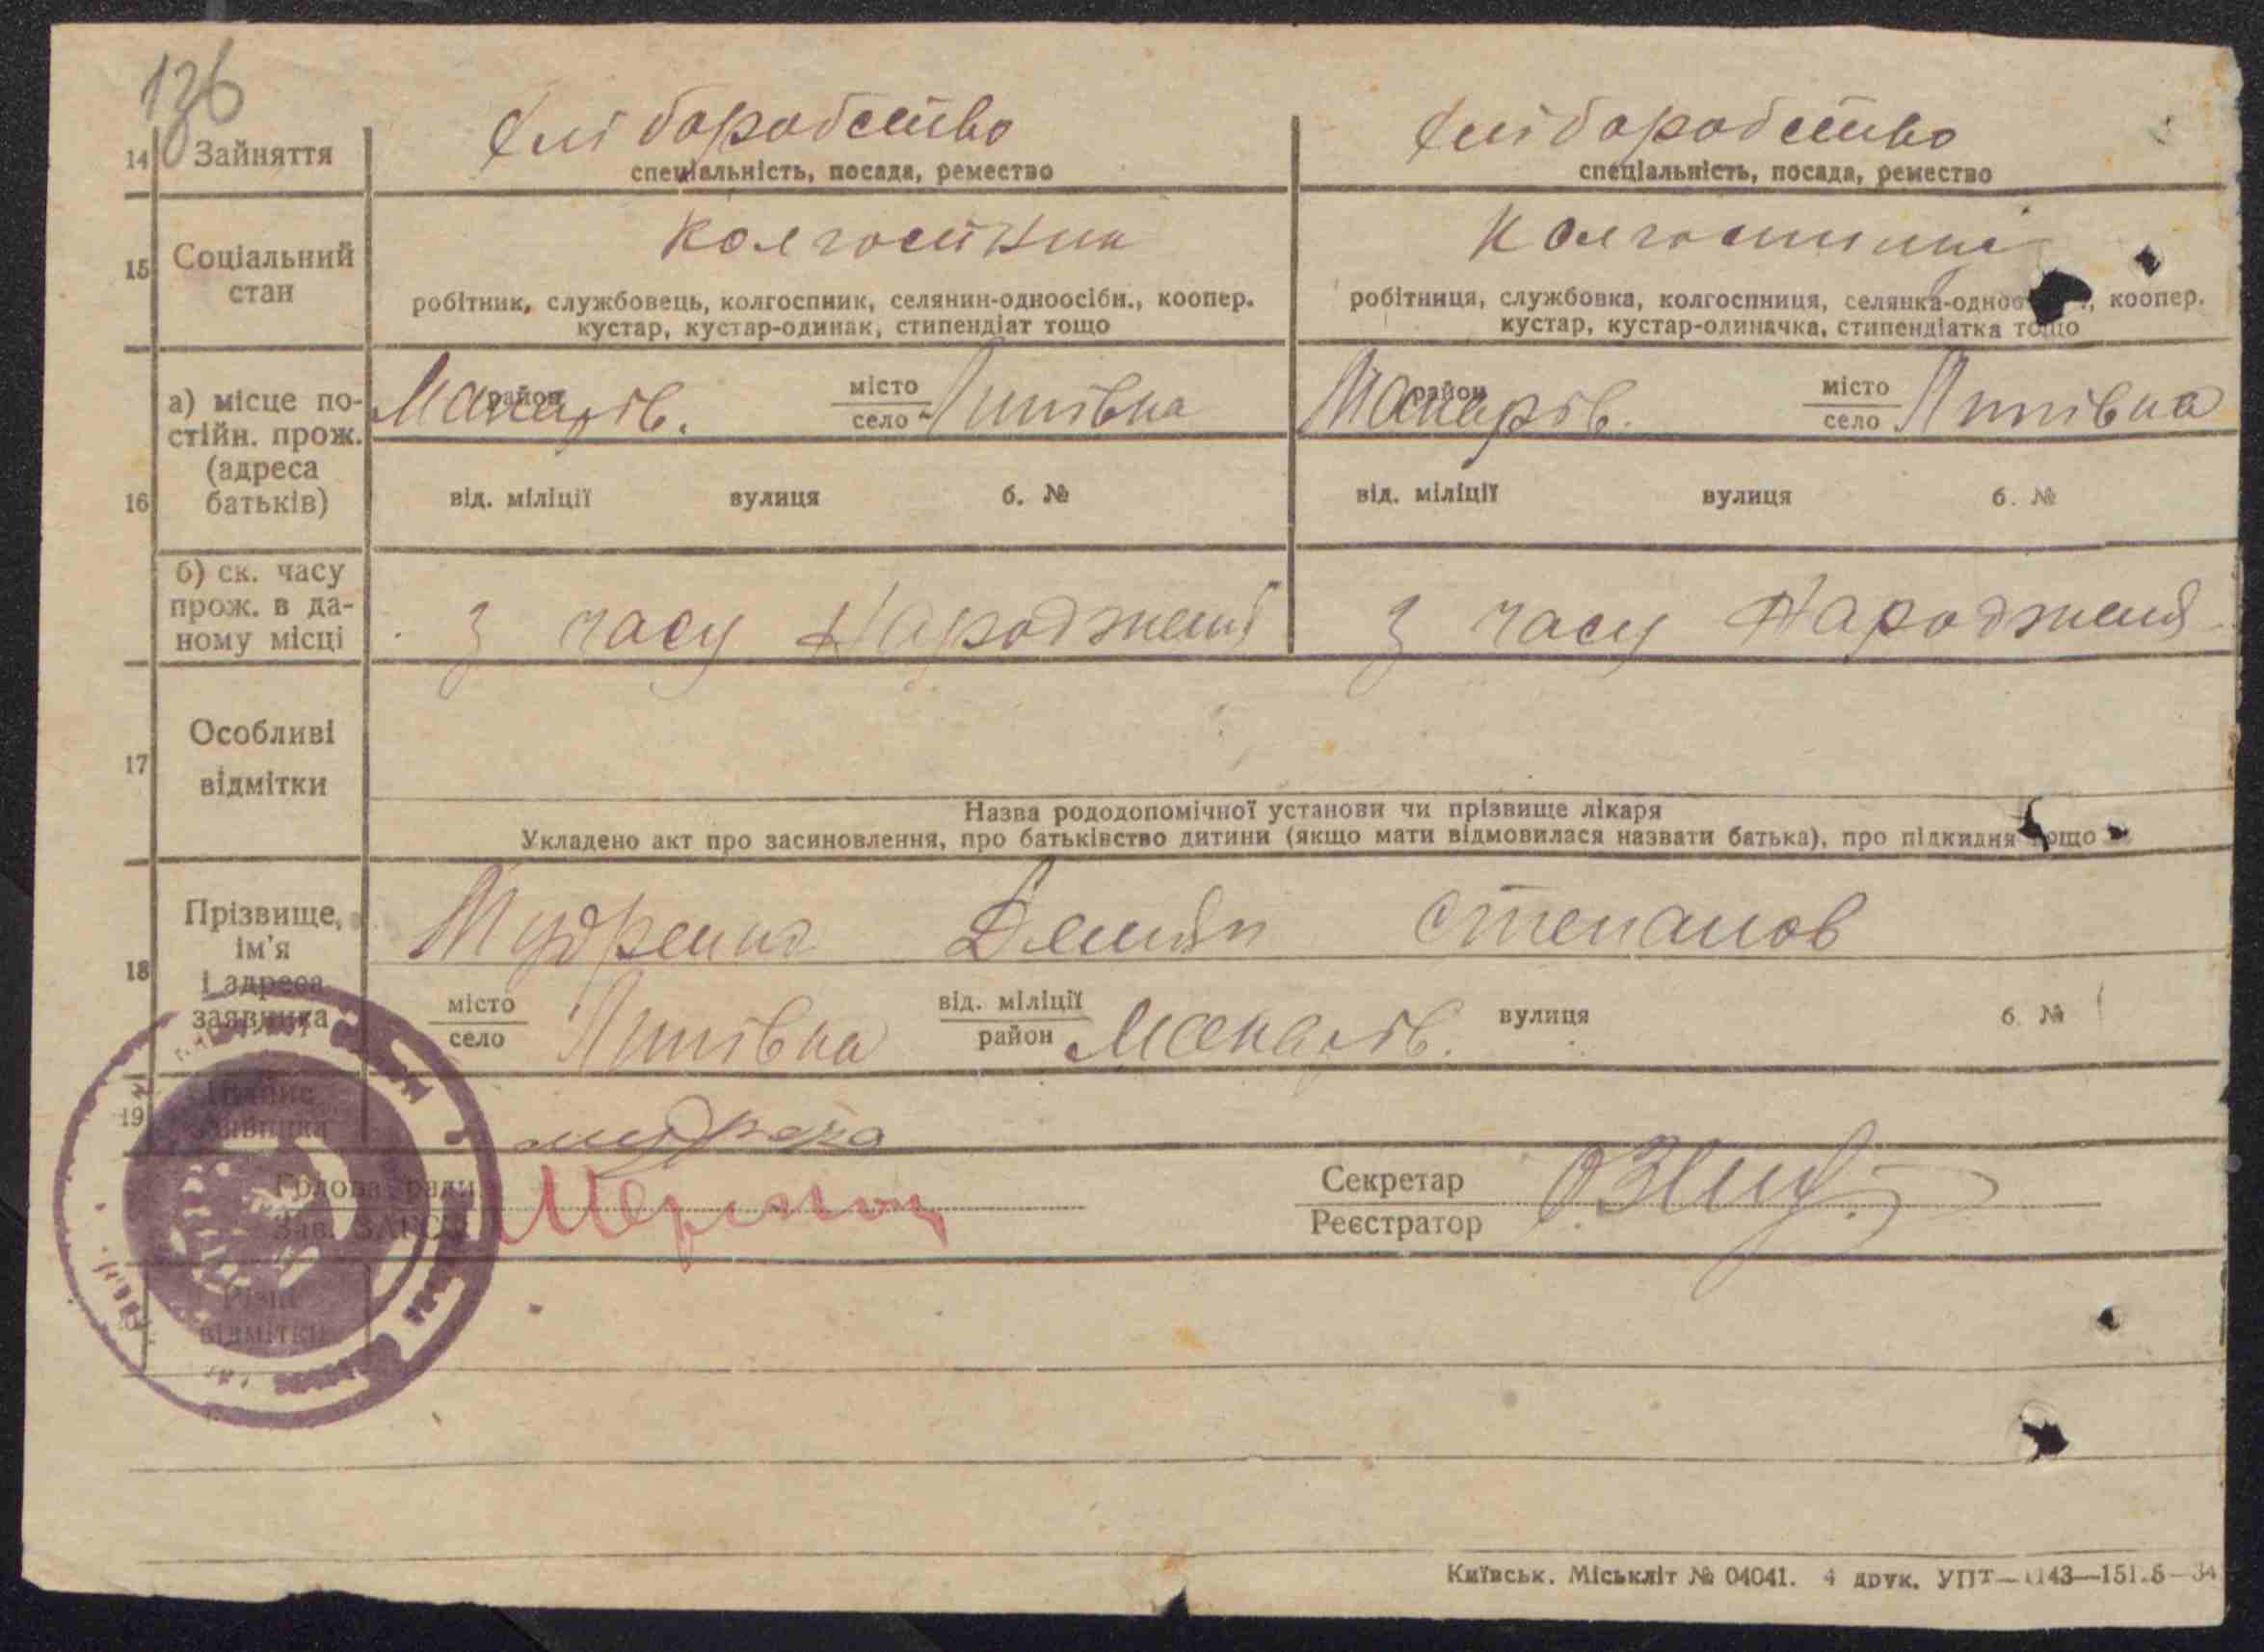 136
14 Зайняття
хлі боробство
хлі боробство
спеціальність, посада, ремество
спеціальність, посада, ремество
15 Соціальний стан
колгоспник
колгоспниця
робітник, службовець, колгоспник, селянин-одноосібн., коопер.
кустар, кустар-одинак, стипендіат тощо
робітниця, службовка, колгоспниця, селянка-одноо , коопер.
кустар, кустар-одиначка, стипендіатка тощо
16 а) місце по-
стійн. прож.
(адреса
батьків)
район Макарів. місто село Липівка
район Макарів. місто село Липівка
від. міліції вулиця б. №
від. міліції вулиця б. №
б) ск. часу
прож. в да-
ному місці
з часу Народженя
з часу Народженя
17 Особливі
відмітки
Назва рододопомічної установи чи прізвище лікаря
Укладено акт про засиновлення, про батьківство дитини (якщо мати відмовилася назвати батька), про підкидня тощо
18 Прізвище,
ім'я
і адреса
заявника
Демян Степанов
місто село Липівка від. міліції район Макарів. вулиця б. №
19 Підпис
заявника
Голова ради
Зав. ЗАГС'ом
Секретар
Реєстратор
Різні
відмітки
Київськ. Міськліт № 04041. 4 друк. УПТ—1143—151.5—34